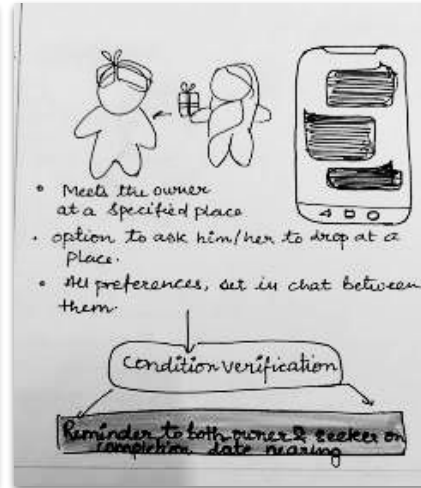 • Meets the owner
at a specified place
• option to ask him/her to drop at a
place.
• All preferences, set in chat between
them.
Condition verification
Reminder to both owner & seeker on
completion date nearing